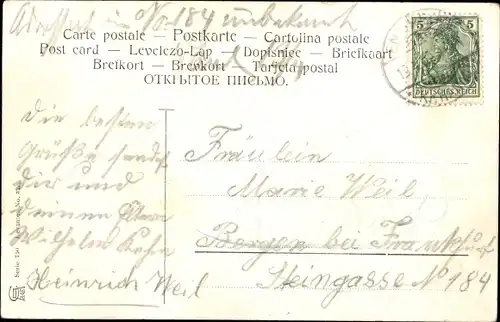 Adressat in No. 184 unbekannt
Carte postale — Postkarte — Cartolina postale
Post card — Levelezö-Lap — Dopisnice — Briefkaart
Brefkort — Brevkort — Tarjeta postal
ОТКРЫТОЕ ПИСЬМО.
5 5
DEUTSCHES REICH
Die besten
Grüße sendet
dir und
deinen Eltern
Wilhelm
Heinrich Weil
Fräulein
Marie Weil
Bergen bei Frankfurt
Steingasse No 184
Serie 150